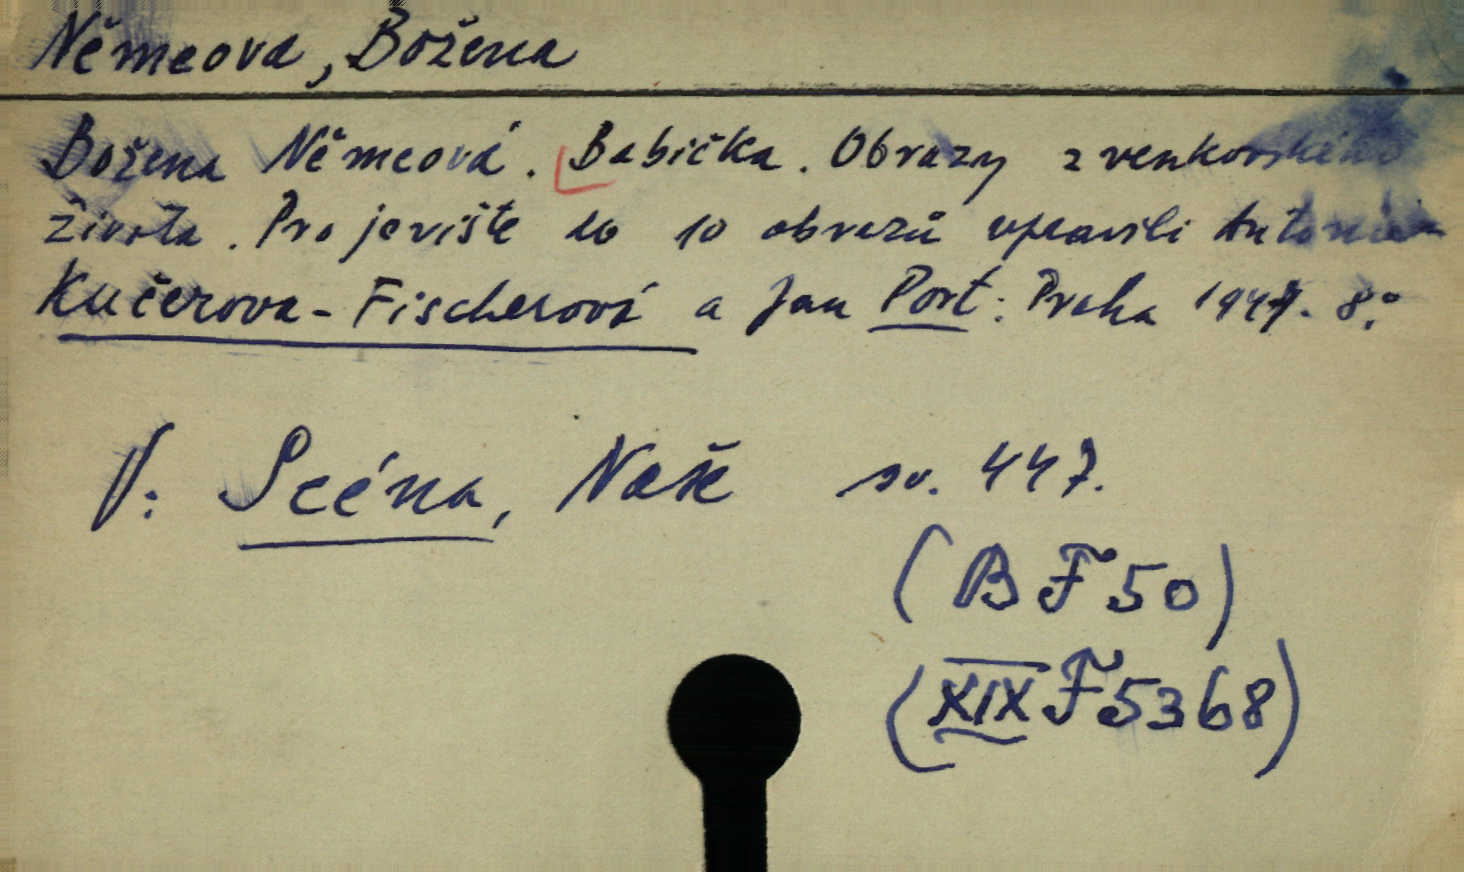 Němcova, Božena
Božena Němcová. Babička. Obrazy z venkovského
života. Pro jeviště do 10 obrazů upravili Antonie
Kučerova-Fischerová a Jan Port. Praha 1947. 8.°
V: Scéna, Naše sv. 447.
(BF50)
(XIXF5368)